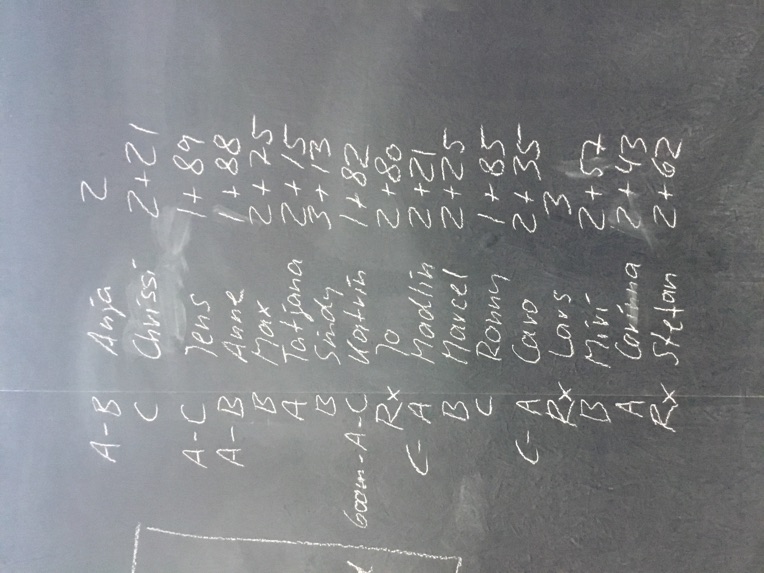 A-B Anja 2
C Chrissi 2+21
A-C Jens 1+89
A-B Anne 1+88
B Max 2+25
A Tatjana 2+15
B Sindy 3+13
600m-A-C Katrin 1+82
Rx Jo 2+80
C-A Madlin 2+21
B Marcel 2+25
C Ronny 1+85
C-A Caro 2+35
Rx Lars 3
B Miri 2+57
A Carinna 2+43
Rx Stefan 2+62